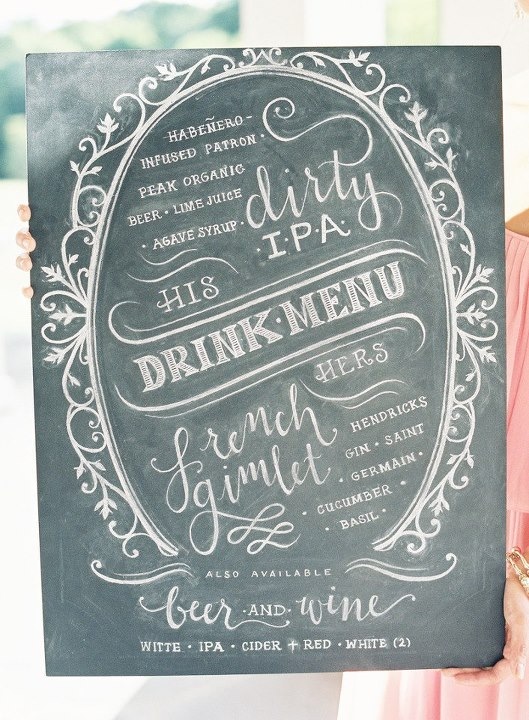 HABEÑERO-
INFUSED PATRON ·
PEAK ORGANIC
BEER · LIME JUICE
· AGAVE SYRUP ·
dirty
I.P.A.
HIS
DRINK · MENU
HERS
french
gimlet
HENDRICKS
GIN · SAINT
GERMAIN ·
CUCUMBER ·
BASIL ·
ALSO AVAILABLE
beer · AND · wine
WITTE · IPA · CIDER + RED · WHITE (2)